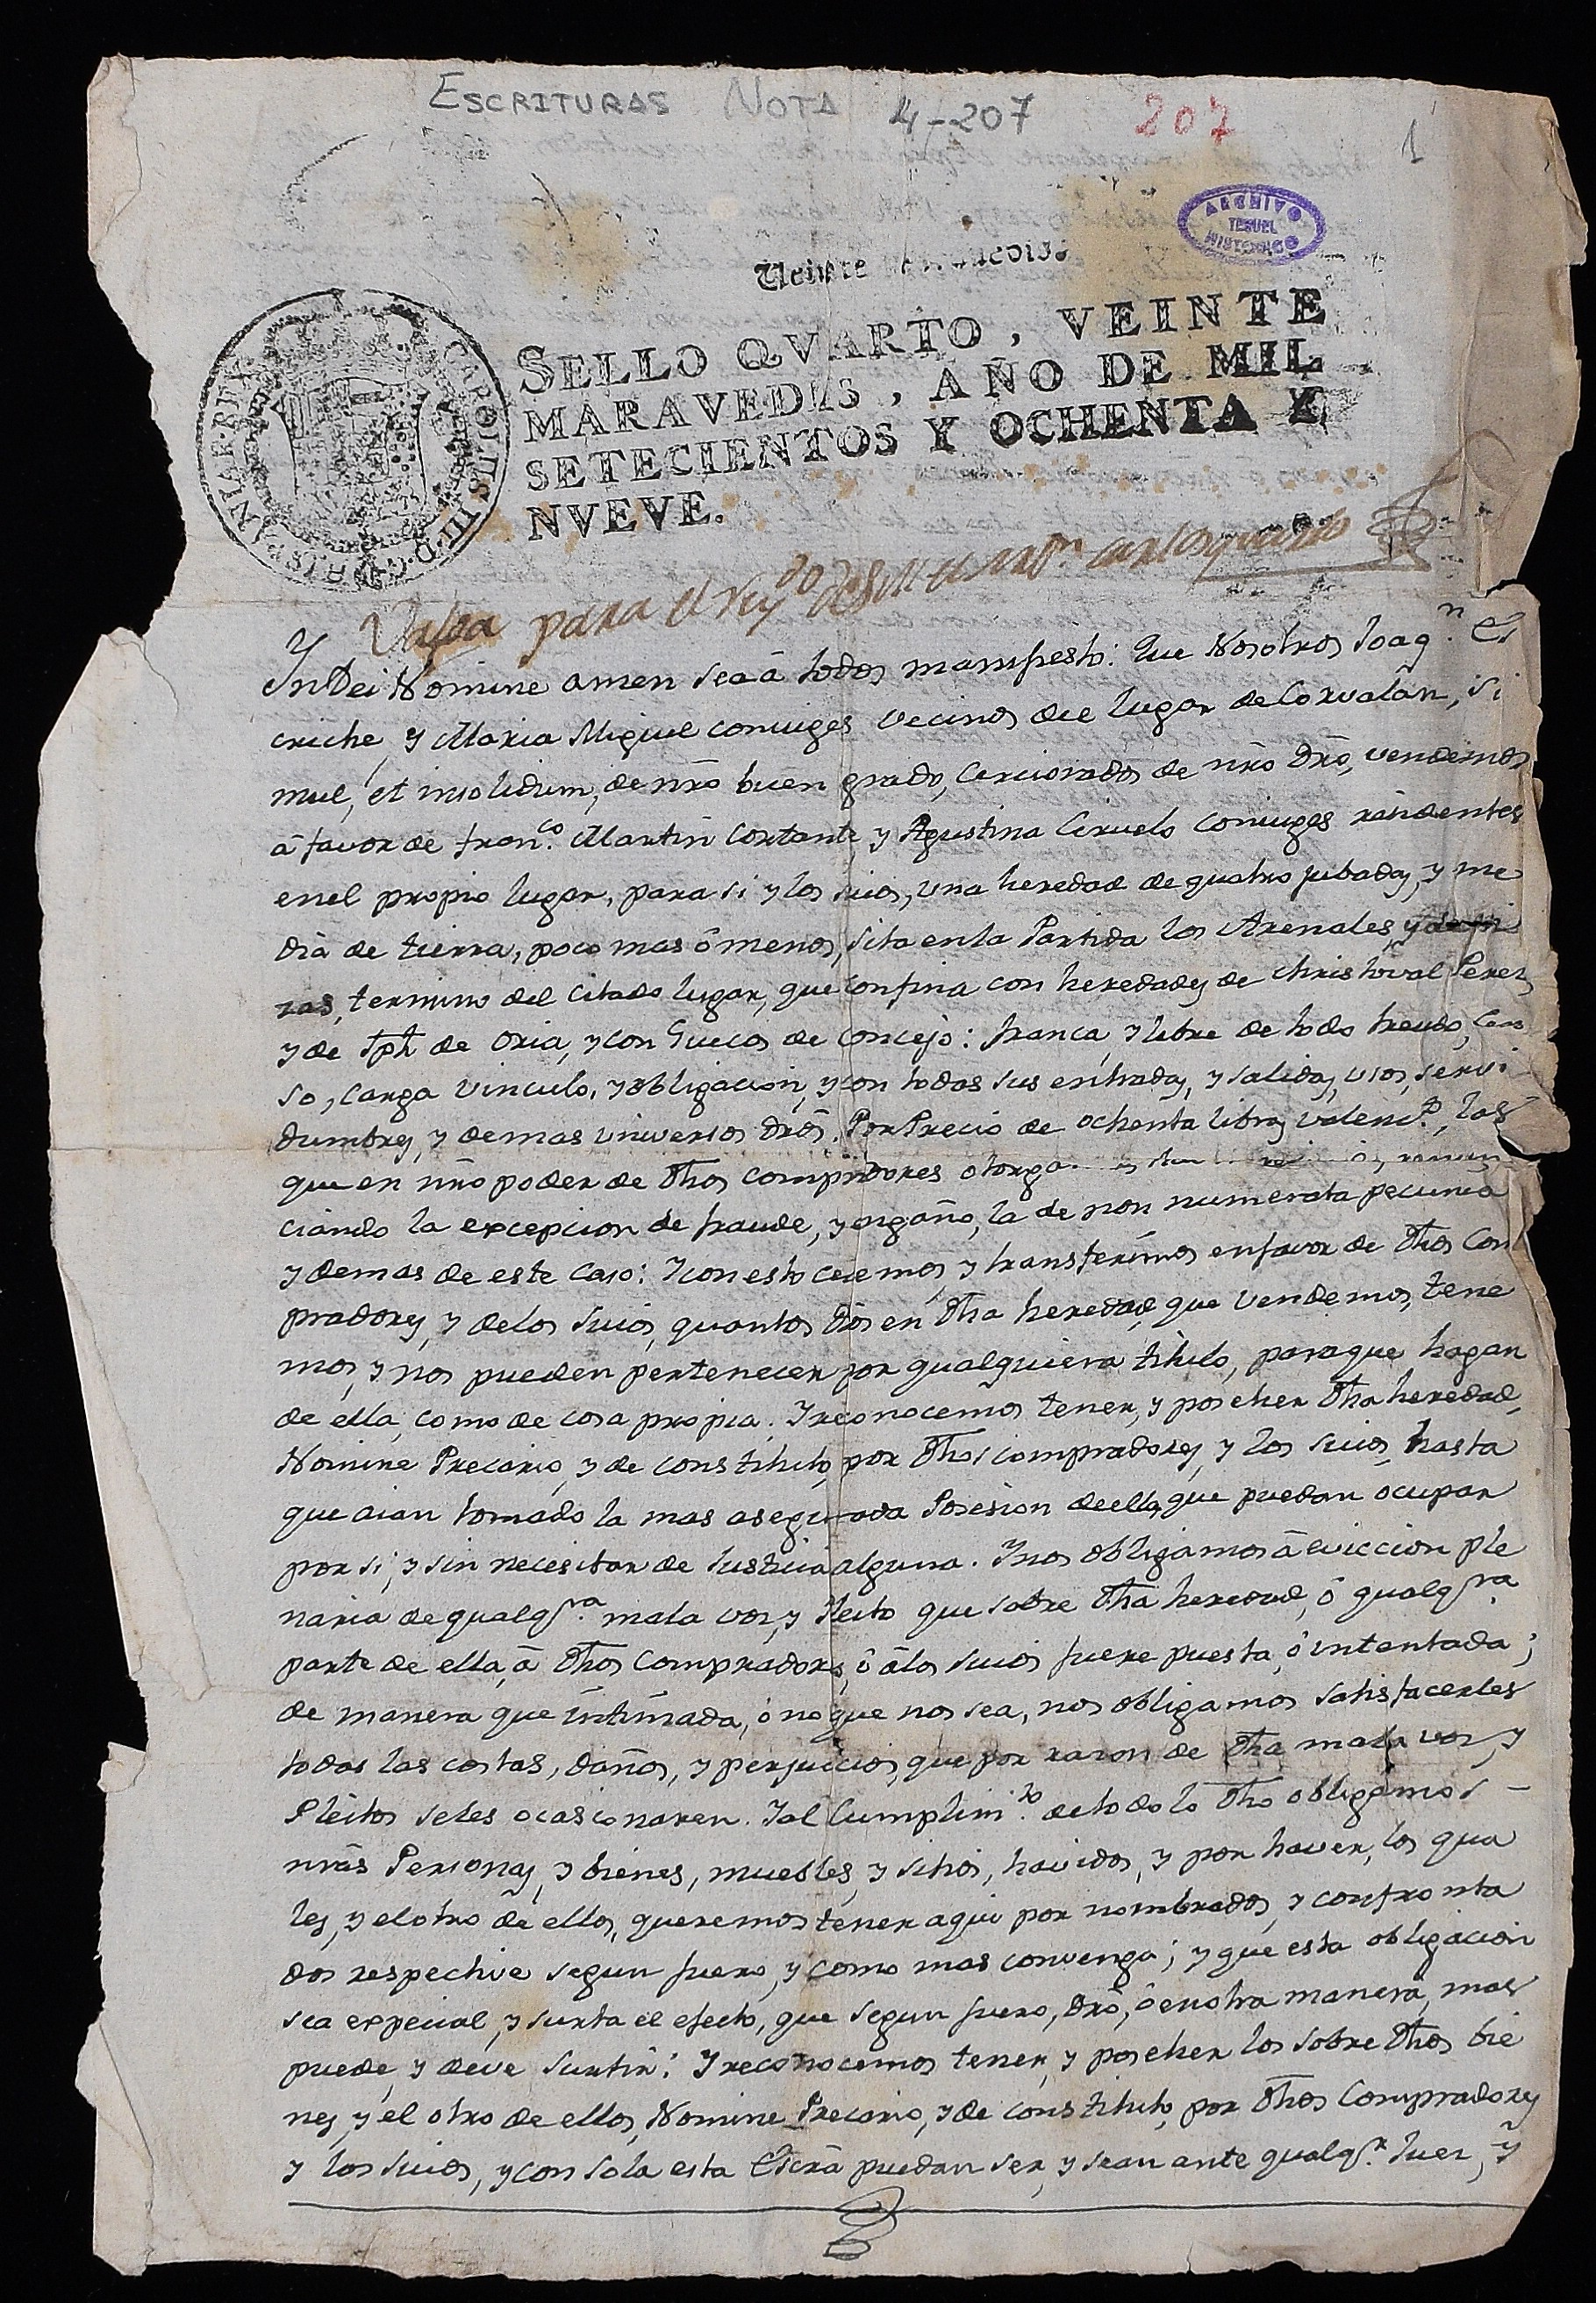 ESCRITURAS NOTA 4-207 207 1
ARCHIVO
TERUEL
HISTORICO
Veinte
SELLO QVARTO, VEINTE
MARAVEDIS, AÑO DE MIL
SETECIENTOS Y OCHENTA Y
NVEVE.
CAROLUS III D. G. HISPANIAR. REX
Valga para el Rey.do de S. M. el Sr. Dn. Carlos quarto
In Dei Nomine amen sea â todos manifesto: Que Nosotros Joaq.n Es
criche y Maria Miguel coniuges vecinos del lugar de Corvalan, si
mul, et insolidum, de nrõ buen grado, Cerciorados de nrõ drõ, vendemos
â favor de fran.co Martin Cortante, y Agustina Ciruelo Coniuges residentes
en el propio lugar, para si y los suios, una heredad de quatro jubadas, y me
dia de tierra, poco mas ô menos, sita en la Partida los Arenales,
termino del Citado lugar, que confina con heredades de Christoval Perez,
y de Jph de Oria, y con Guecos de Concejo: franca, y libre de todo treudo, Cen
so, carga vinculo, y obligacion, y con todas sus entradas, y salidas, usos, servi
dumbres, y demas universos drõs. Por Precio de ochenta libras valenc.s, las
que en nrõ poder de dhos compradores otorga renun
ciando la excepcion de fraude, y engaño, la de non numerata pecunia
y demas de este caso: Y con esto cedemos, y transferimos en favor de dhos Com
pradores, y de los suios, quantos drõs en dha heredad, que vendemos, tene
mos, y nos pueden pertenecer por qualquiera titulo, paraque hagan
de ella, como de cosa propia. Y reconocemos tener, y poseher dha heredad,
Nomine Precario, y de constituto, por dhos compradores, y los suios, hasta
que aian tomado la mas asegurada Posesion de ella, que puedan ocupar
por si, y sin necesitar de Justicia alguna. Y nos obligamos â eviccion ple
naria de qualq.ra mala voz, y Pleito que sobre dha heredad, ô qualq.ra
parte de ella, â dhos Compradores, ô â los suios fuere puesta, ô intentada;
de manera que intimada, ô no que nos sea, nos obligamos satisfacerles
todas las costas, daños, y perjuicios, que por razon de dha mala voz, y
Pleitos seles ocasionaren. Y al Cumplim.to de todo lo dho obligamos
nrãs Personas, y bienes, muebles, y sitios, havidos, y por haver, los qua
les, y el otro de ellos, queremos tener aqui por nombrados, y confronta
dos respective segun fuero, y como mas convenga; y que esta obligacion
sea especial, y surta el efecto, que segun fuero, drõ, ô en otra manera, mas
puede, y deve surtir: Y reconocemos tener, y poseher los sobre dhos bie
nes, y el otro de ellos, Nomine Precario, y de constituto, por dhos Compradores
y los suios, y con sola esta Escrã puedan ser, y sean ante qualq.r Juez, y